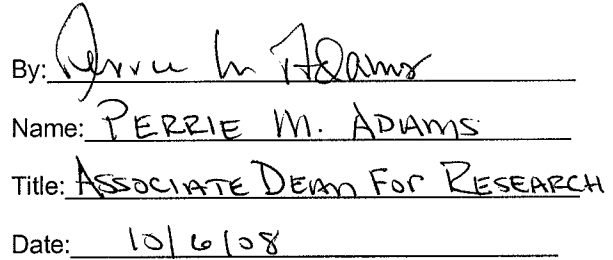 By: Perrie M Adams
Name: PERRIE M. ADAMS
Title: ASSOCIATE DEAN FOR RESEARCH
Date: 10/6/08